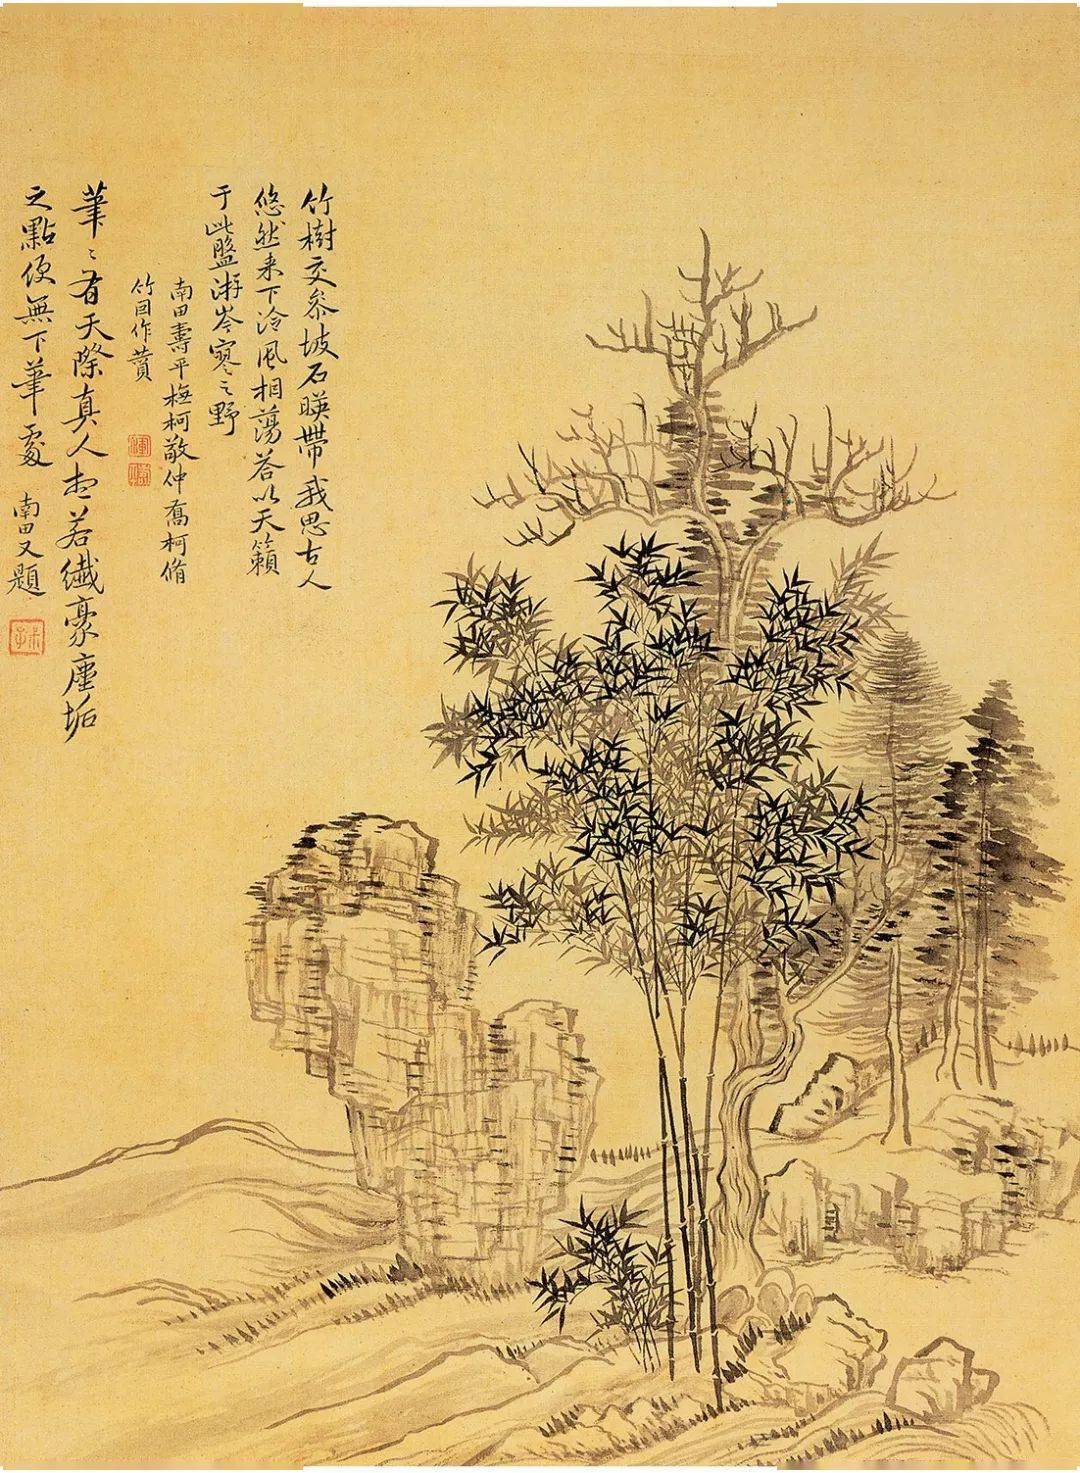 竹樹交參坡石暎帶我思古人
悠然来下泠風相蕩答以天籟
于此盤游岑寥之野
南田壽平橅柯敬仲喬柯脩
竹因作贊
筆〻有天際真人想若纖豪塵垢
之點便無下筆處 南田又題